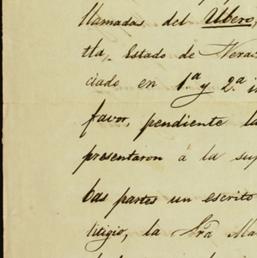 llamadas del Ubero,
tla, Estado de Vera
ciado en 1.ª y 2.ª i
favor, pendiente la
presentaron á la sup
bas partes un escrito
litigio, la Sra Ma